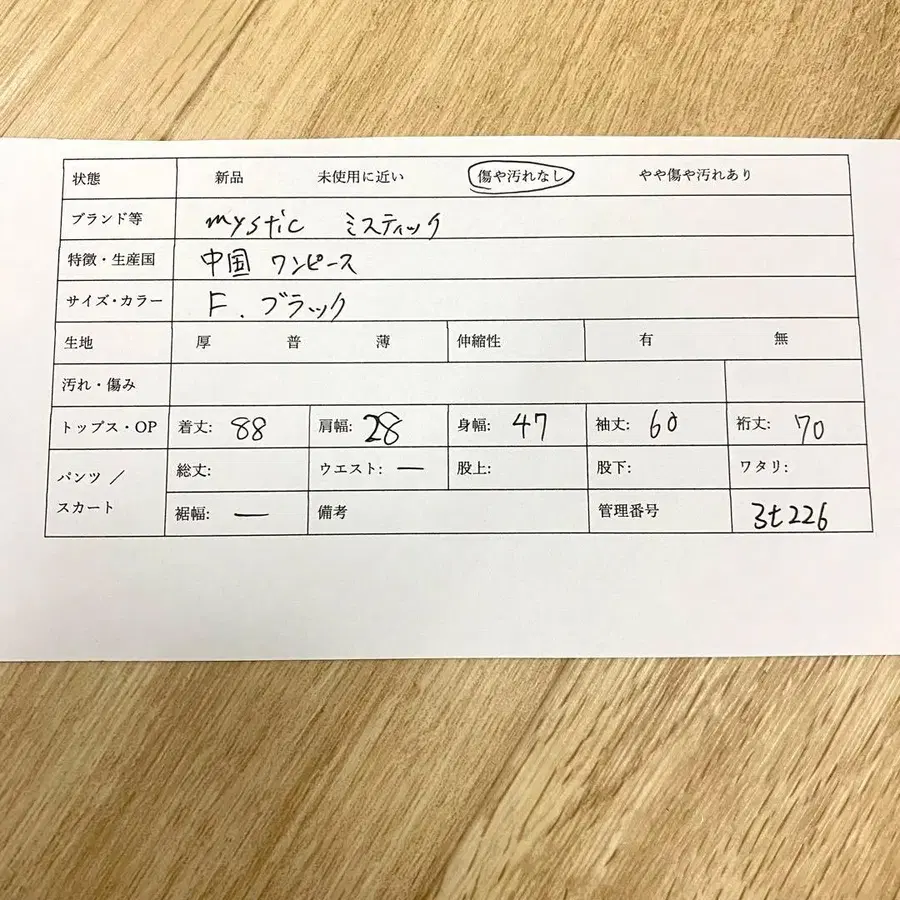 状態 新品 未使用に近い 傷や汚れなし やや傷や汚れあり
ブランド等 mystic ミスティック
特徴・生産国 中国 ワンピース
サイズ・カラー F. ブラック
生地 厚 普 薄 伸縮性 有 無
汚れ・傷み
トップス・OP 着丈: 88 肩幅: 28 身幅: 47 袖丈: 60 裄丈: 70
パンツ / 総丈: ウエスト: — 股上: 股下: ワタリ:
スカート 裾幅: — 備考 管理番号 3t226